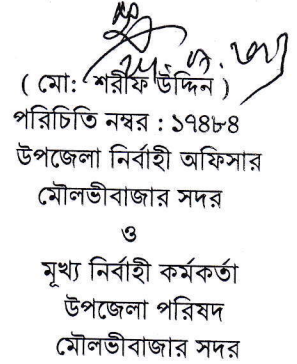 ( মো: শরীফ উদ্দিন )
পরিচিতি নম্বর : ১৭৪৮৪
উপজেলা নির্বাহী অফিসার
মৌলভীবাজার সদর
ও
মূখ্য নির্বাহী কর্মকর্তা
উপজেলা পরিষদ
মৌলভীবাজার সদর